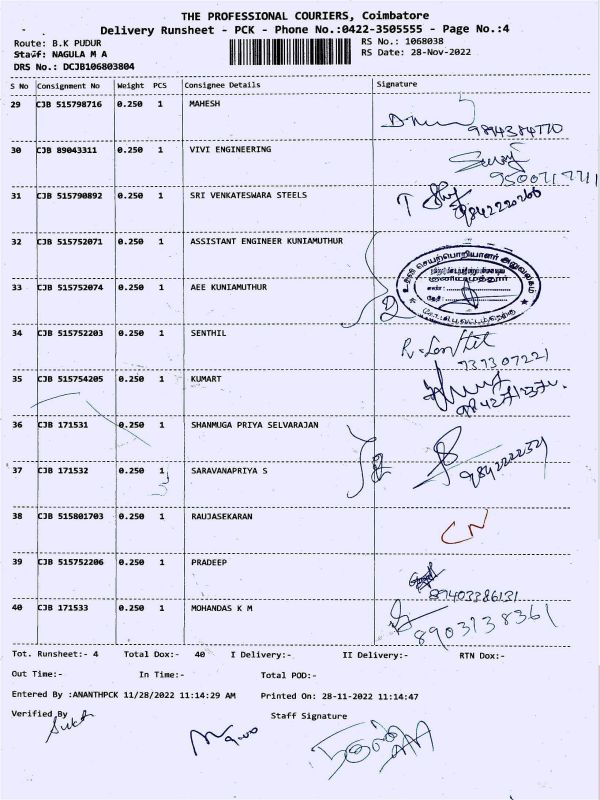 THE PROFESSIONAL COURIERS, Coimbatore
Delivery Runsheet - PCK - Phone No.:0422-3505555 - Page No.:4
Route: B.K PUDUR RS No.: 1068038
Staff: NAGULA M A RS Date: 28-Nov-2022
DRS No.: DCJB106803804
S No Consignment No Weight PCS Consignee Details Signature
29 CJB 515798716 0.250 1 MAHESH
30 CJB 89043311 0.250 1 VIVI ENGINEERING
31 CJB 515790892 0.250 1 SRI VENKATESWARA STEELS
9842220266
32 CJB 515752071 0.250 1 ASSISTANT ENGINEER KUNIAMUTHUR
உதவி செயற்பொறியாளர் அலுவலகம்
33 CJB 515752074 0.250 1 AEE KUNIAMUTHUR
2
34 CJB 515752203 0.250 1 SENTHIL
35 CJB 515754205 0.250 1 KUMART
36 CJB 171531 0.250 1 SHANMUGA PRIYA SELVARAJAN
37 CJB 171532 0.250 1 SARAVANAPRIYA S
2
38 CJB 515801703 0.250 1 RAUJASEKARAN
CN
39 CJB 515752206 0.250 1 PRADEEP
89403386131
40 CJB 171533 0.250 1 MOHANDAS K M
8903138361
Tot. Runsheet:- 4 Total Dox:- 40 I Delivery:- II Delivery:- RTN Dox:-
Out Time:- In Time:- Total POD:-
Entered By :ANANTHPCK 11/28/2022 11:14:29 AM Printed On: 28-11-2022 11:14:47
Verified By Staff Signature